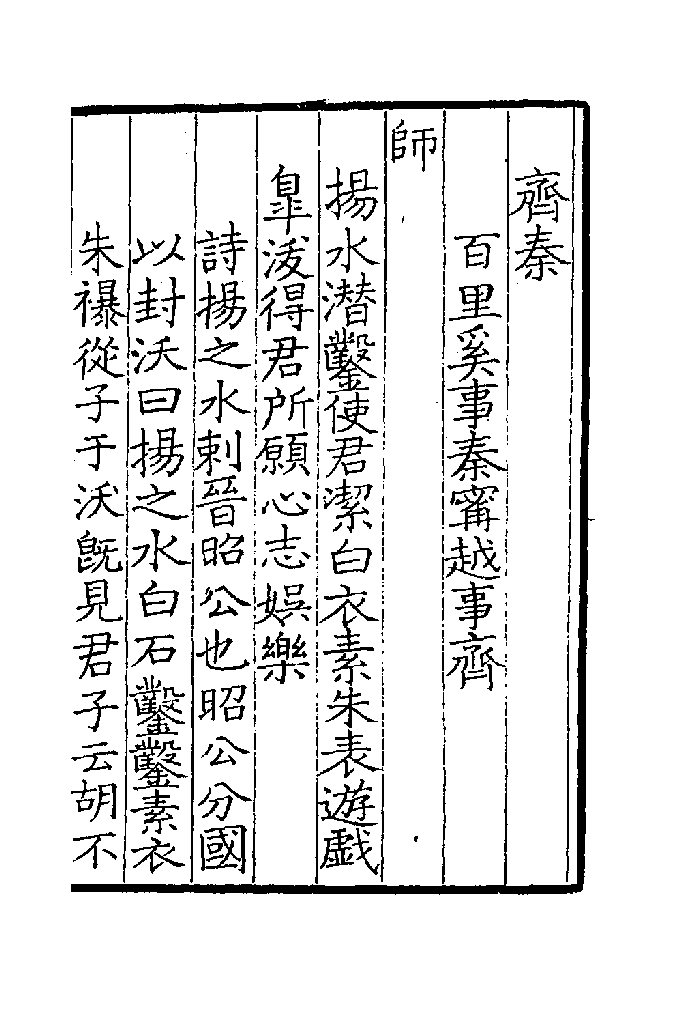 齊秦
百里奚事秦甯越事齊
師
揚水潛鑿使君潔白衣素朱表遊戯
臯沷得君所願心志娯樂
詩揚之水刺晉昭公也昭公分國
以封沃曰揚之水白石鑿鑿素衣
朱襮從子于沃旣見君子云胡不